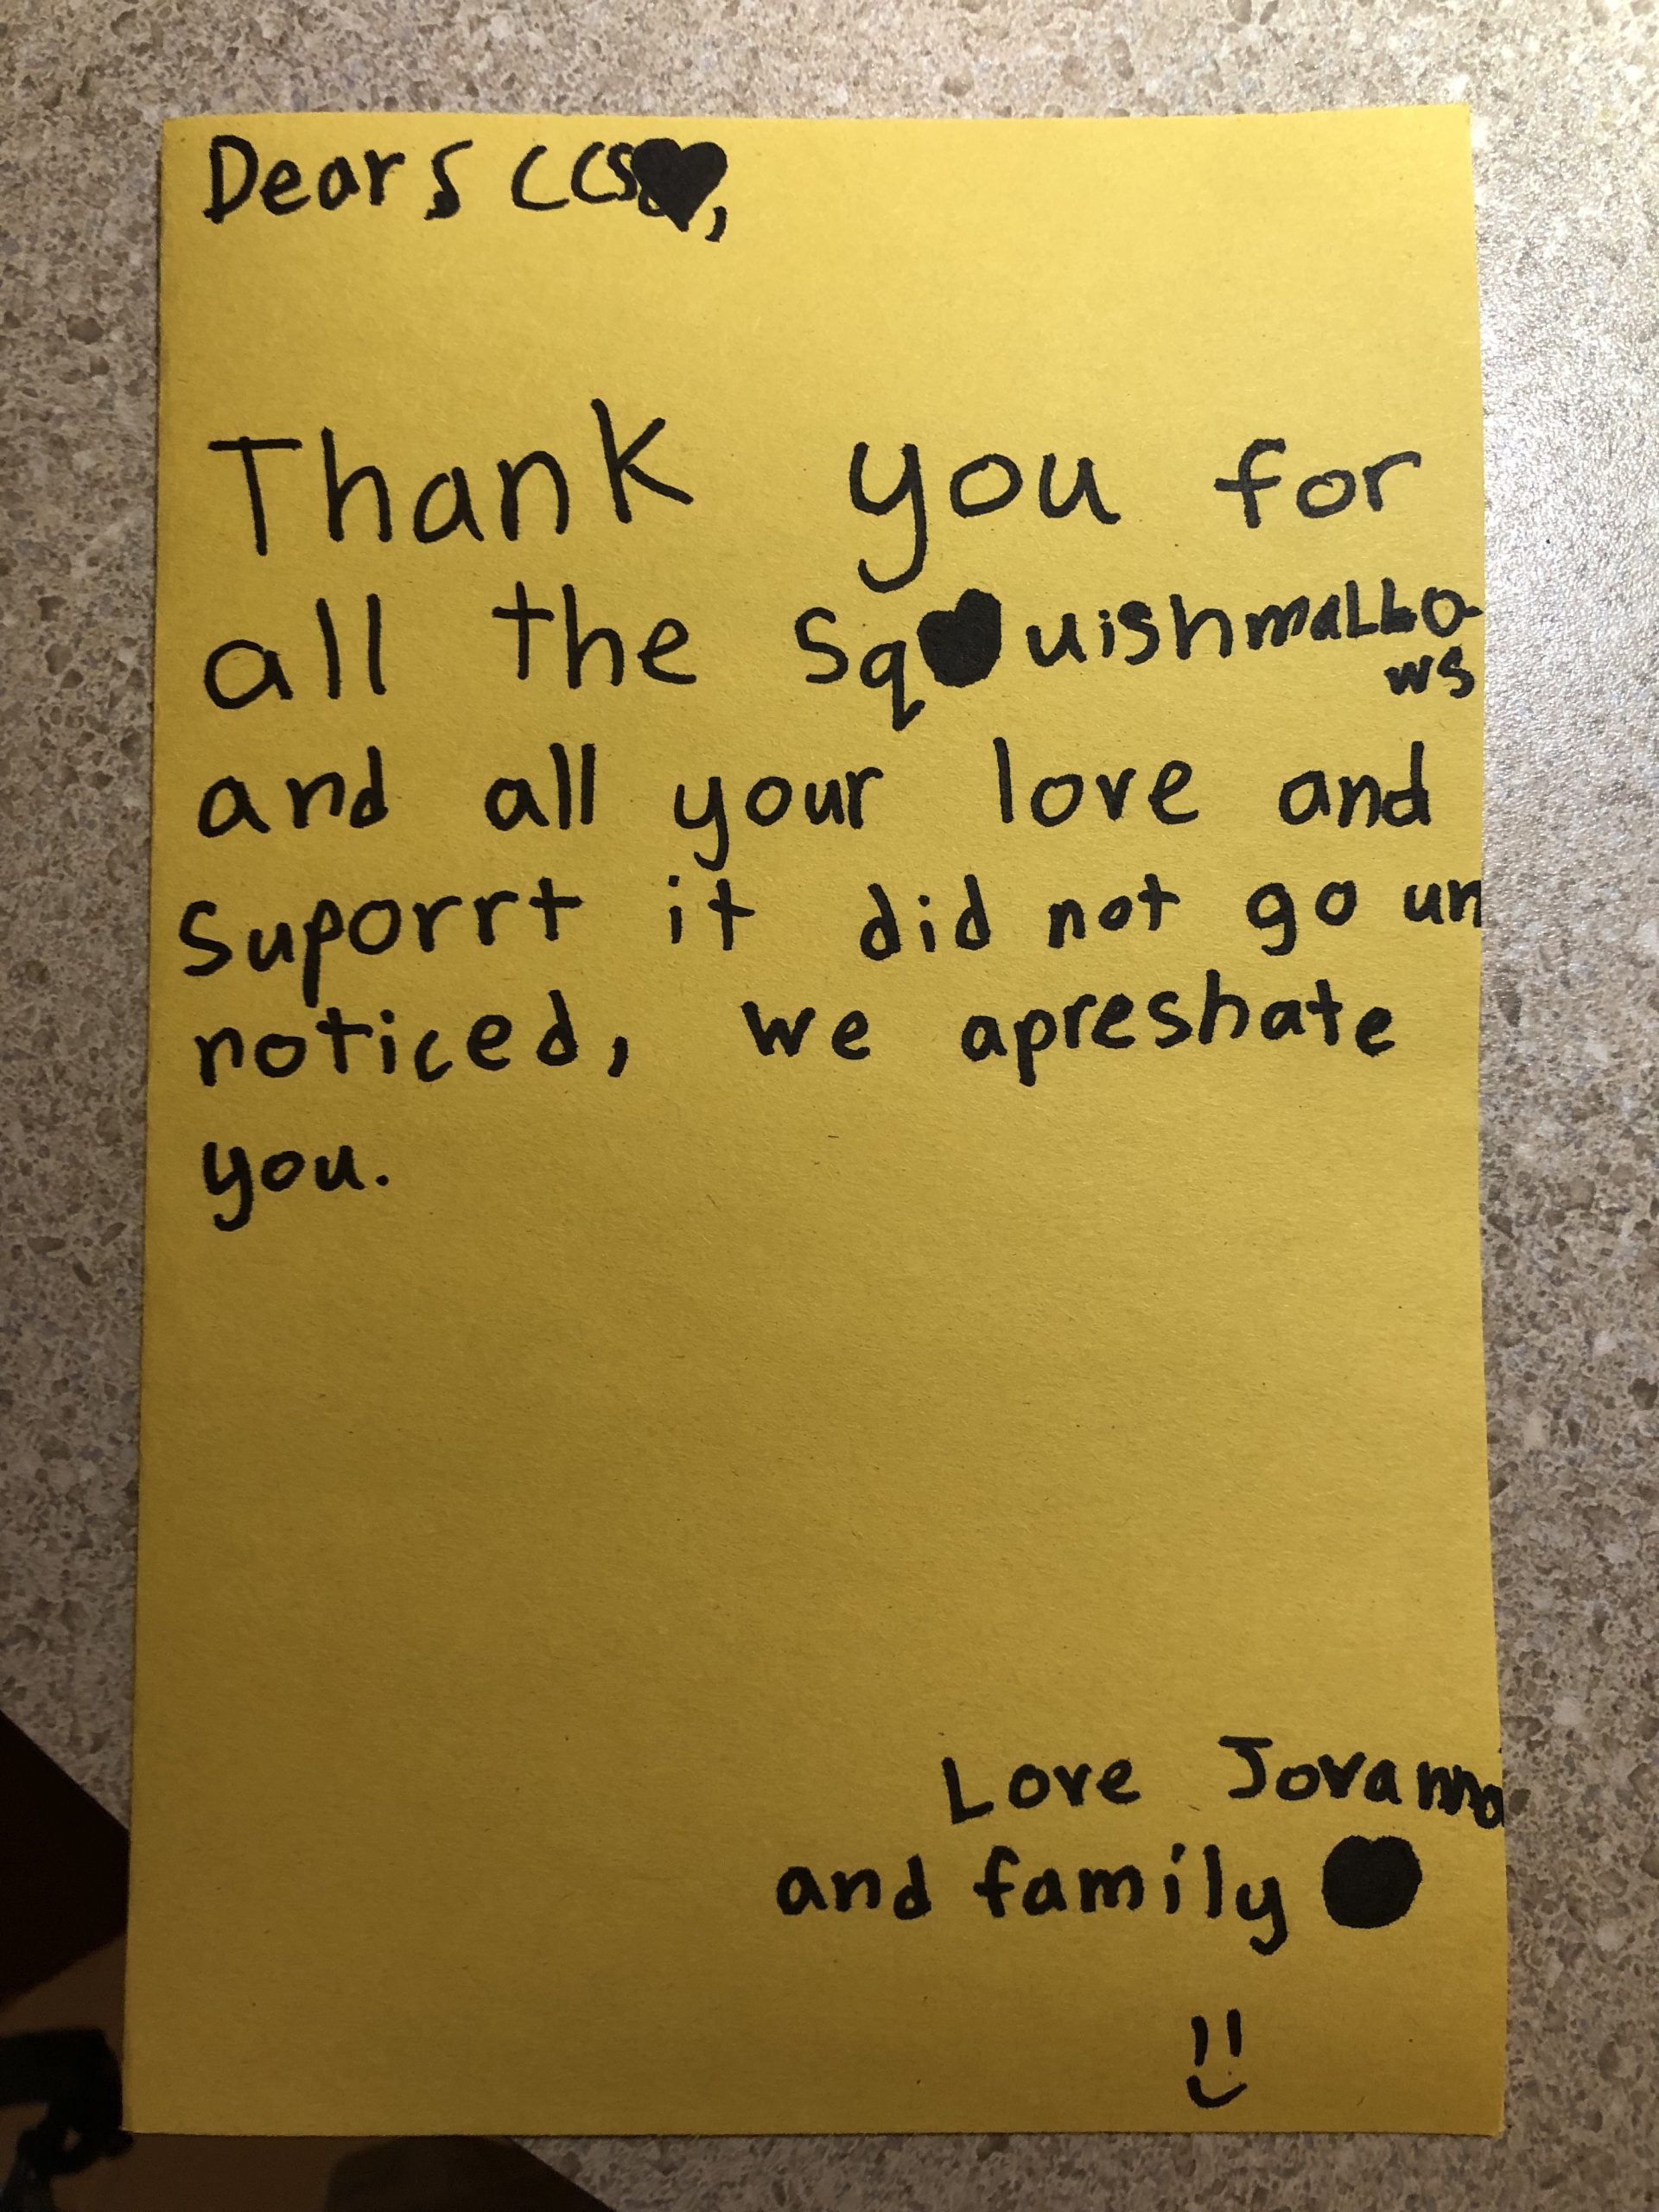 Dear SCCS,
Thank you for
all the Squishmallo-
ws
and all your love and
suporrt it did not go un
noticed, we apreshate
you.
Love Jovanna
and family